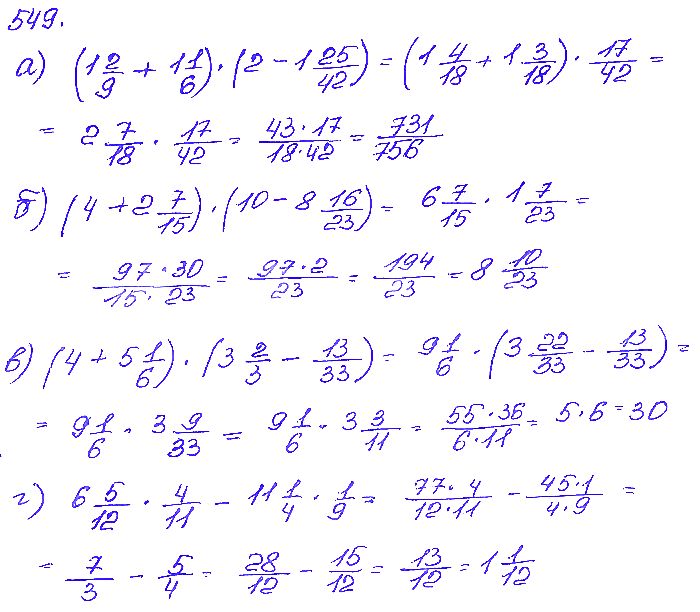 549.
а) (1 2/9 + 1 1/6) · (2 − 1 25/42) = (1 4/18 + 1 3/18) · 17/42 =
= 2 7/18 · 17/42 = 43·17/18·42 = 731/756
б) (4 + 2 7/15) · (10 − 8 16/23) = 6 7/15 · 1 7/23 =
= 97·30/15·23 = 97·2/23 = 194/23 = 8 10/23
в) (4 + 5 1/6) · (3 2/3 − 13/33) = 9 1/6 · (3 22/33 − 13/33) =
= 9 1/6 · 3 9/33 = 9 1/6 · 3 3/11 = 55·36/6·11 = 5·6 = 30
г) 6 5/12 · 4/11 − 11 1/4 · 1/9 = 77·4/12·11 − 45·1/4·9 =
= 7/3 − 5/4 = 28/12 − 15/12 = 13/12 = 1 1/12